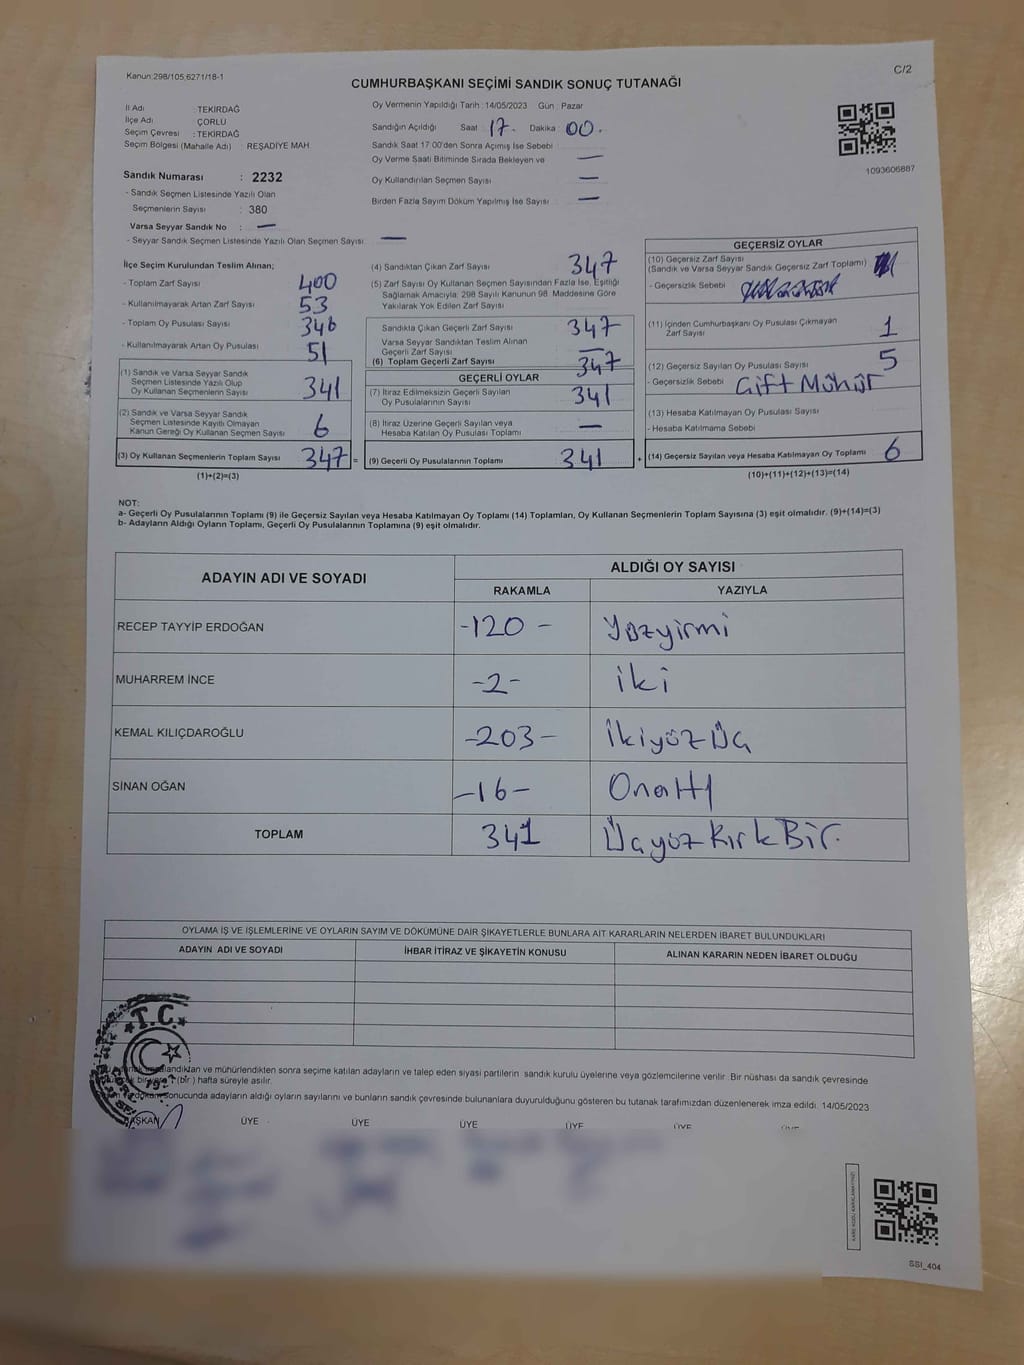 Kanun:298/105,6271/18-1
C/2
CUMHURBAŞKANI SEÇİMİ SANDIK SONUÇ TUTANAĞI
İl Adı : TEKİRDAĞ
İlçe Adı : ÇORLU
Seçim Çevresi : TEKİRDAĞ
Seçim Bölgesi (Mahalle Adı) REŞADİYE MAH
Sandık Numarası : 2232
- Sandık Seçmen Listesinde Yazılı Olan
Seçmenlerin Sayısı : 380
Varsa Seyyar Sandık No : —
- Seyyar Sandık Seçmen Listesinde Yazılı Olan Seçmen Sayısı —
Oy Vermenin Yapıldığı Tarih :14/05/2023 Gün : Pazar
Sandığın Açıldığı Saat 17. Dakika : 00.
Sandık Saat 17:00'den Sonra Açımış İse Sebebi
Oy Verme Saati Bitiminde Sırada Bekleyen ve —
Oy Kullandırılan Seçmen Sayısı —
Birden Fazla Sayım Döküm Yapılmış İse Sayısı —
1093606887
İlçe Seçim Kurulundan Teslim Alınan;
- Toplam Zarf Sayısı 400
- Kullanılmayarak Artan Zarf Sayısı 53
- Toplam Oy Pusulası Sayısı 346
- Kullanılmayarak Artan Oy Pusulası 51
(1) Sandık ve Varsa Seyyar Sandık
Seçmen Listesinde Yazılı Olup
Oy Kullanan Seçmenlerin Sayısı 341
(2) Sandık ve Varsa Seyyar Sandık
Seçmen Listesinde Kayıtlı Olmayan
Kanun Gereği Oy Kullanan Seçmen Sayısı 6
(3) Oy Kullanan Seçmenlerin Toplam Sayısı 347 =
(1)+(2)=(3)
(4) Sandıktan Çıkan Zarf Sayısı 347
(5) Zarf Sayısı Oy Kullanan Seçmen Sayısından Fazla İse, Eşitliği
Sağlamak Amacıyla; 298 Sayılı Kanunun 98. Maddesine Göre
Yakılarak Yok Edilen Zarf Sayısı
Sandıkta Çıkan Geçerli Zarf Sayısı 347
Varsa Seyyar Sandıktan Teslim Alınan
Geçerli Zarf Sayısı —
(6) Toplam Geçerli Zarf Sayısı 347
GEÇERLİ OYLAR
(7) İtiraz Edilmeksizin Geçerli Sayılan
Oy Pusulalarının Sayısı 341
(8) İtiraz Üzerine Geçerli Sayılan veya
Hesaba Katılan Oy Pusulası Toplamı —
(9) Geçerli Oy Pusulalarının Toplamı 341 +
GEÇERSİZ OYLAR
(10) Geçersiz Zarf Sayısı
(Sandık ve Varsa Seyyar Sandık Geçersiz Zarf Toplamı)
- Geçersizlik Sebebi
(11) İçinden Cumhurbaşkanı Oy Pusulası Çıkmayan
Zarf Sayısı 1
(12) Geçersiz Sayılan Oy Pusulası Sayısı 5
- Geçersizlik Sebebi Çift Mühür
(13) Hesaba Katılmayan Oy Pusulası Sayısı
- Hesaba Katılmama Sebebi
(14) Geçersiz Sayılan veya Hesaba Katılmayan Oy Toplamı 6
(10)+(11)+(12)+(13)=(14)
NOT:
a- Geçerli Oy Pusulalarının Toplamı (9) ile Geçersiz Sayılan veya Hesaba Katılmayan Oy Toplamı (14) Toplamları, Oy Kullanan Seçmenlerin Toplam Sayısına (3) eşit olmalıdır. (9)+(14)=(3)
b- Adayların Aldığı Oyların Toplamı, Geçerli Oy Pusulalarının Toplamına (9) eşit olmalıdır.
ADAYIN ADI VE SOYADI ALDIĞI OY SAYISI
RAKAMLA YAZIYLA
RECEP TAYYİP ERDOĞAN -120- Yüzyirmi
MUHARREM İNCE -2- iki
KEMAL KILIÇDAROĞLU -203- İkiyüz Üç
SİNAN OĞAN -16- Onaltı
TOPLAM 341 Üçyüz Kırk Bir.
OYLAMA İŞ VE İŞLEMLERİNE VE OYLARIN SAYIM VE DÖKÜMÜNE DAİR ŞİKAYETLERLE BUNLARA AİT KARARLARIN NELERDEN İBARET BULUNDUKLARI
ADAYIN ADI VE SOYADI İHBAR İTİRAZ VE ŞİKAYETİN KONUSU ALINAN KARARIN NEDEN İBARET OLDUĞU
T.C.
ve mühürlendikten sonra seçime katılan adayların ve talep eden siyasi partilerin sandık kurulu üyelerine veya gözlemcilerine verilir. Bir nüshası da sandık çevresinde
(bir) hafta süreyle asılır.
sonucunda adayların aldığı oyların sayılarını ve bunların sandık çevresinde bulunanlara duyurulduğunu gösteren bu tutanak tarafımızdan düzenlenerek imza edildi. 14/05/2023
BAŞKAN ÜYE ÜYE ÜYE ÜYE ÜYE ÜYE
SSI_404